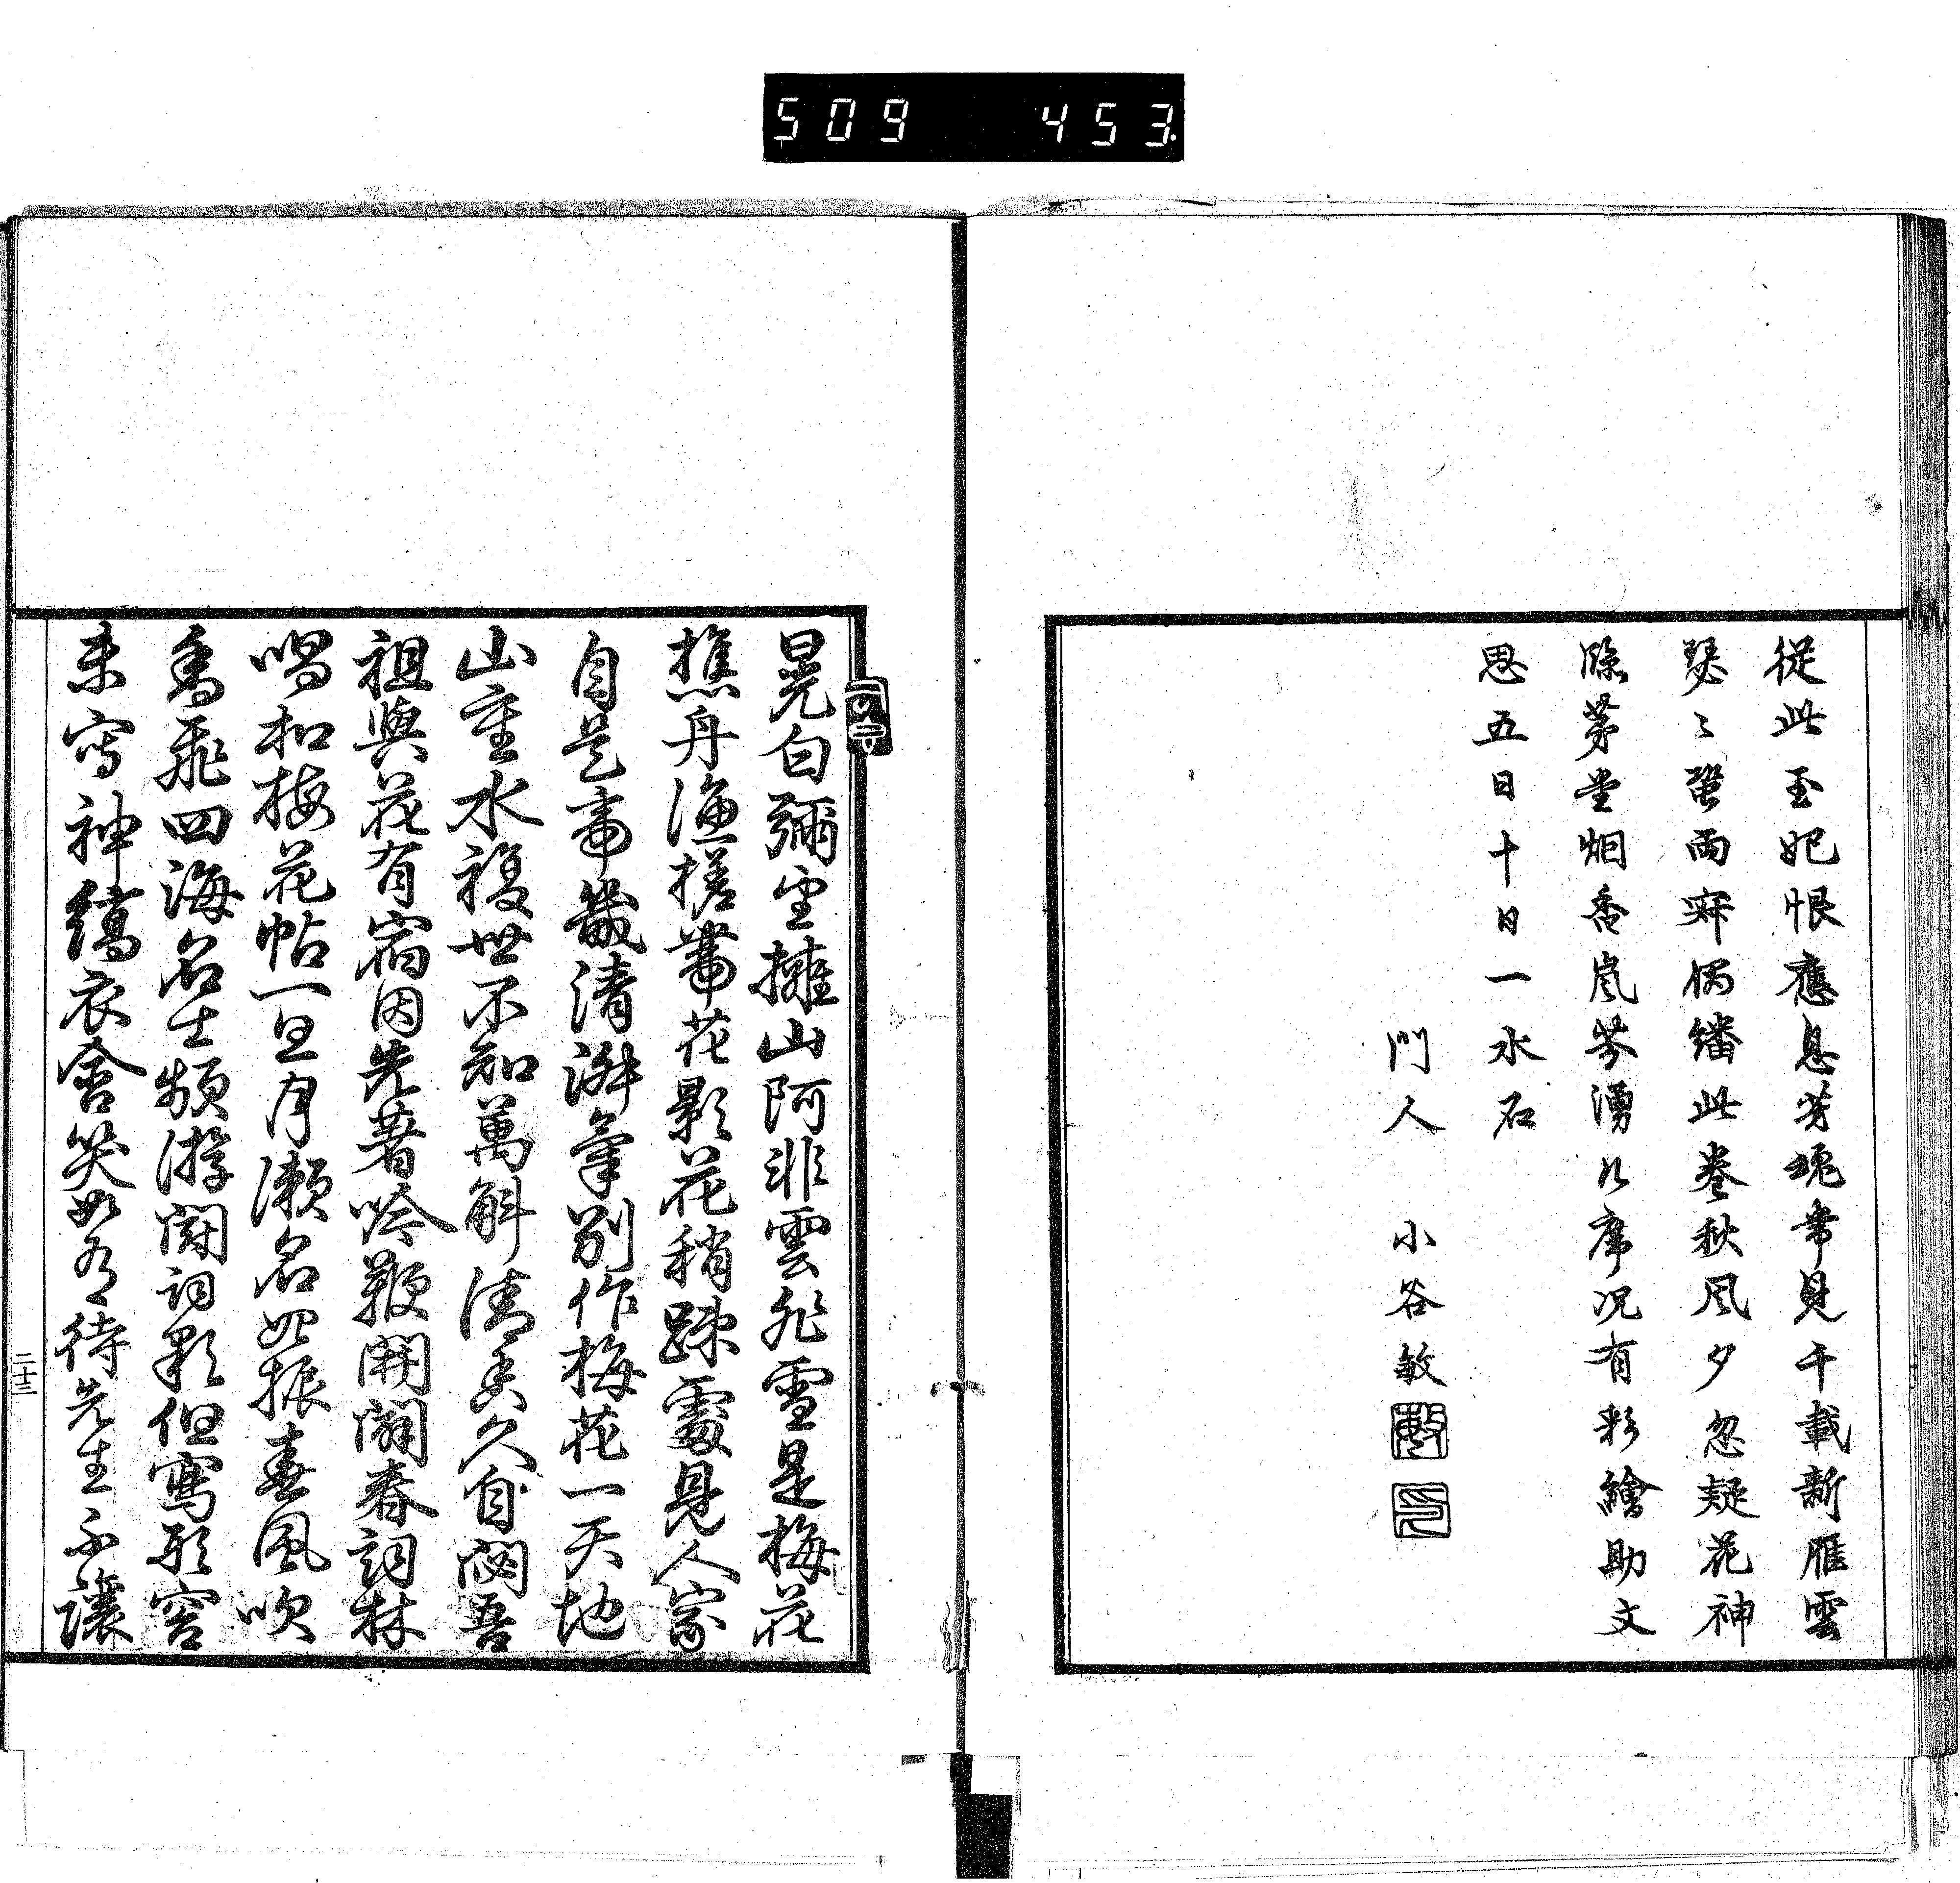 509 453
從此玉妃恨應息芳魂常見千載新雁雲
瑟〻蛩雨寂偶繙此卷秋風夕忽疑花神
降茅堂烟香嵐芬湧几席況有彩繪助文
思五日十日一水石
門人 小谷敏
晃白彌空擁山阿非雲非雪是梅花
樵舟漁搓帶花影花稍踈處見人家
自是乾清淑氣別作梅花一天地
山重水複世不知萬斛清香久自閟吾
祖與花有宿因先著吟鞭開闢春詞林
唱和梅花帖一旦月瀬名始振春風吹
香飛四海名士頻游鬪詞彩但寫形容
未寫神縞衣含笑如有待先生不讓
二十三